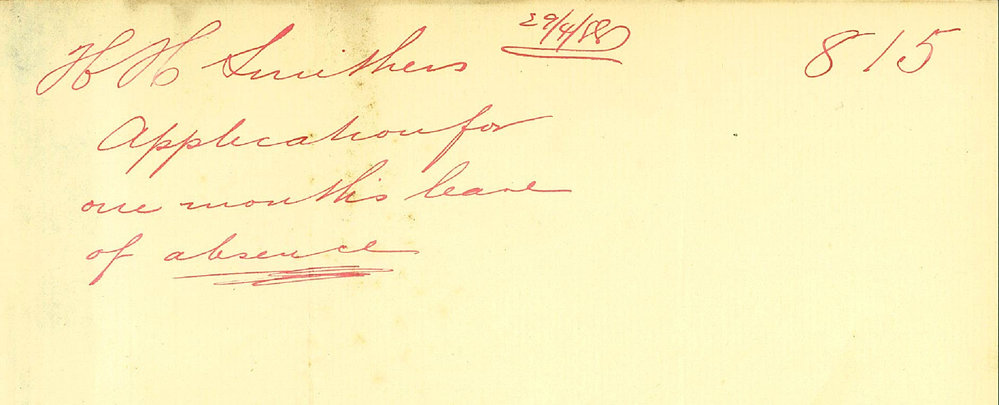 H H Smithers 29/4/88 815
Application for
one months leave
of absence